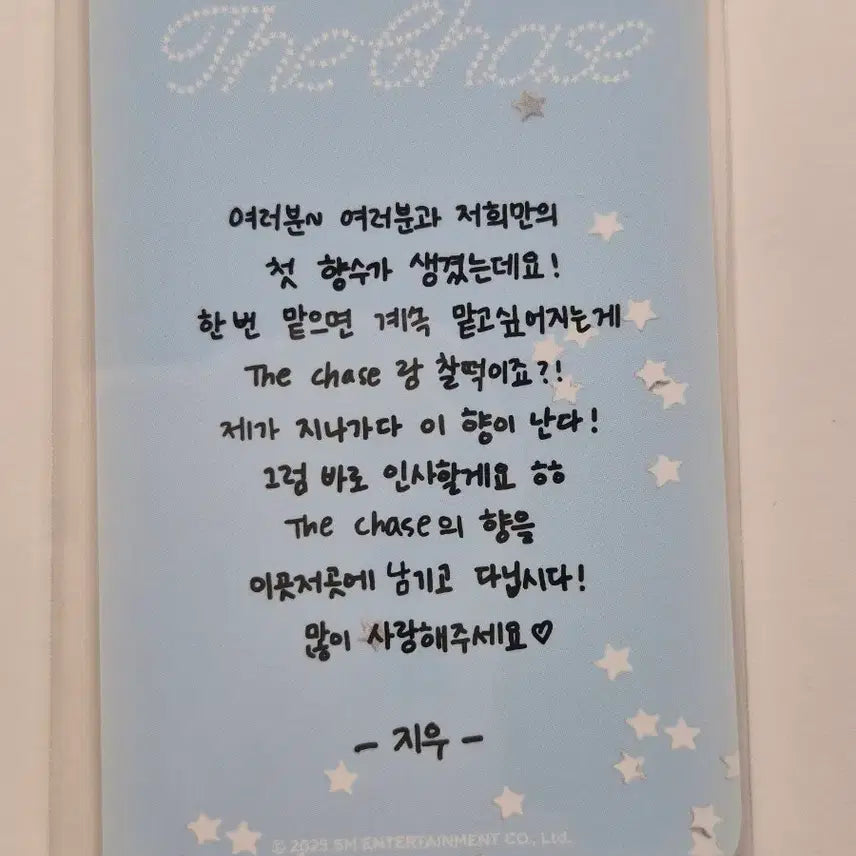 The Chase
여러분~ 여러분과 저희만의
첫 향수가 생겼는데요!
한번 맡으면 계속 맡고싶어지는게
The chase 랑 찰떡이죠?!
제가 지나가다 이 향이 난다!
그럼 바로 인사할게요 ㅎㅎ
The chase의 향을
이곳저곳에 남기고 다닙시다!
많이 사랑해주세요♡
- 지우 -
© 2025 SM ENTERTAINMENT CO., Ltd.